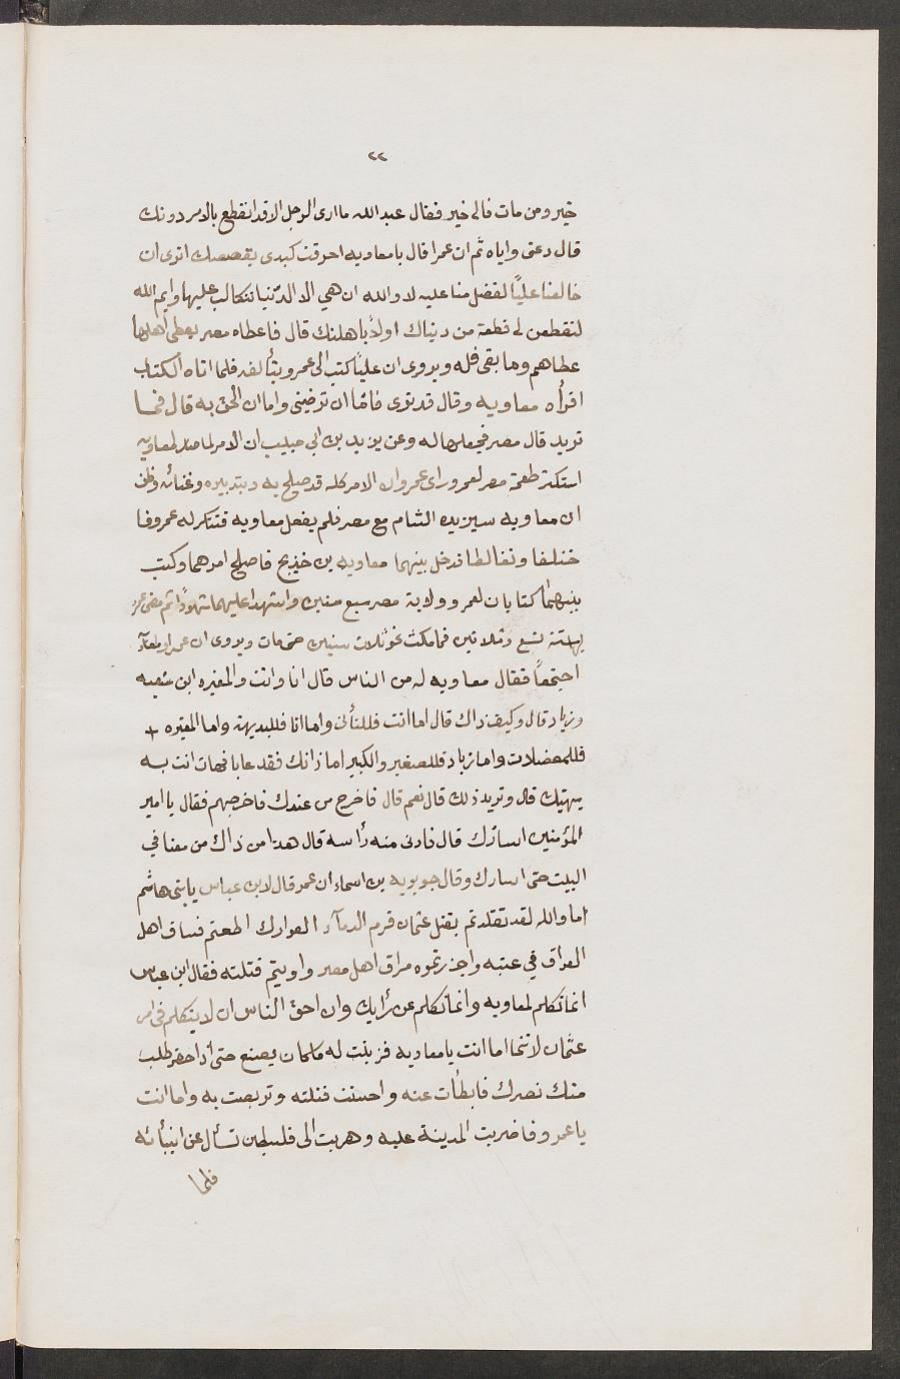 ٢٢
خير ومن مات فالى خير فقال عبدالله ما ارى الرجل الا قد انقطع بالامر دونك
قال دعنى واياه ثم ان عمرا قال يا معاويه احرقت كبدى بقصصك اترى ان
خالفنا عليًا لفضل منا عليه لا والله ان هي الا الدنيا نتكالب عليها وايم الله
لتقطعن لى قطعة من دنياك اولأنابذنك قال فاعطاه مصر يعطى اهلها
عطاهم وما بقى فله ويروى ان عليًا كتب الى عمرو يتألفه فلما اتاه الكتاب
اقرأه معاويه وقال قد ترى فامّا ان ترضينى واما ان الحق به قال فما
تريد قال مصر فجعلها له وعن يزيد بن ابى حبيب ان الامر لما صار لمعاويه
استكثر طعمة مصر لعمرو وراى عمرو ان الامر كله قد صلح به وبتدبيره وغنائه وظن
ان معاويه سيزيده الشام مع مصر فلم يفعل معاويه فتنكر له عمرو فا
ختلفا وتغالظا فدخل بينهما معاويه بن خديج فاصلح امرهما وكتب
بينهما كتابا ان لعمرو ولاية مصر سبع سنين واشهدا عليهما شهودًا ثم مضى عمرو
سنة تسع وثلاثين فما مكث نحو ثلاث سنين حتى مات ويروى ان عمرا ومعاويه
اجتمعاً فقال معاويه له من الناس قال انا وانت والمغيره ابن شعبه
وزياد قال وكيف ذاك قال اما انت فللتأنى واما انا فللبديهة واما المغيره +
فللمعضلات واما زياد فللصغير والكبير اما ذانك فقد غابا فهات انت بد
يهتك قال وتريد ذلك قال نعم قال فاخرج من عندك فاخرجهم فقال يا امير
المؤمنين اسارّك قال فادنى منه رأسه قال هذا من ذاك من معنا في
البيت حتى اسارك وقال جويريه بن اسماء ان عمر قال لابن عباس يا بنى هاشم
اما والله لقد تقلدتم بقتل عثمان قرم الدمآء العوارك اطعتم فساق اهل
العراق في عتبه واجزرتموه مراق اهل مصر واويتم قتلته فقال ابن عباس
انما تكلم لمعاويه وانما تكلم عن رأيك وان احق الناس ان لا يتكلم فى امر
عثمان لانتما اما انت يا معاويه فزينت له ما كان يصنع حتى اذا حصر طلب
منك نصرك فابطأت عنه واحببت قتلته وتربصت به واما انت
يا عمرو فاضربت المدينة عليه وهربت الى فلسطين تسأل عن انبائه
فلما